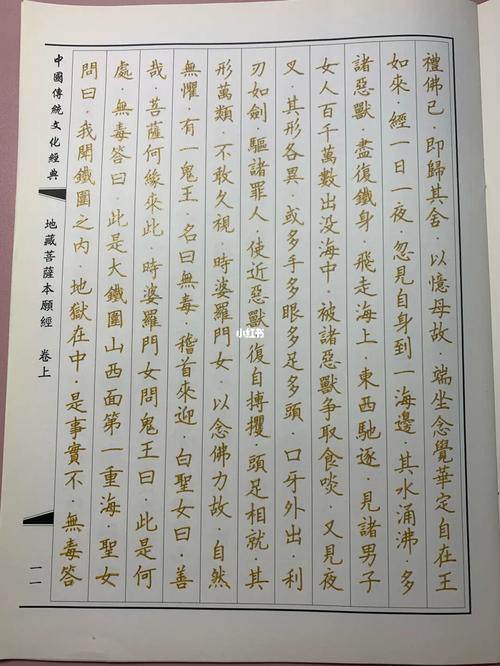 禮佛已·即歸其舍·以憶母故·端坐念覺華定自在王
如來·經一日一夜·忽見自身到一海邊·其水涌沸·多
諸惡獸·盡復鐵身·飛走海上·東西馳逐·見諸男子
女人百千萬數出没海中·被諸惡獸争取食啖·又見夜
叉·其形各異·或多手多眼多足多頭·口牙外出·利
刃如劍·驅諸罪人·使近惡獸復自搏攫·頭足相就·其
形萬類·不敢久視·時婆羅門女·以念佛力故·自然
無懼·有一鬼王·名曰無毒·稽首來迎·白聖女曰·善
哉·菩薩何緣來此·時婆羅門女問鬼王曰·此是何
處·無毒答曰·此是大鐵圍山西面第一重海·聖女
問曰·我聞鐵圍之内·地獄在中·是事實不·無毒答
中國傳統文化經典
地藏菩薩本願經 卷上
一一
小红书